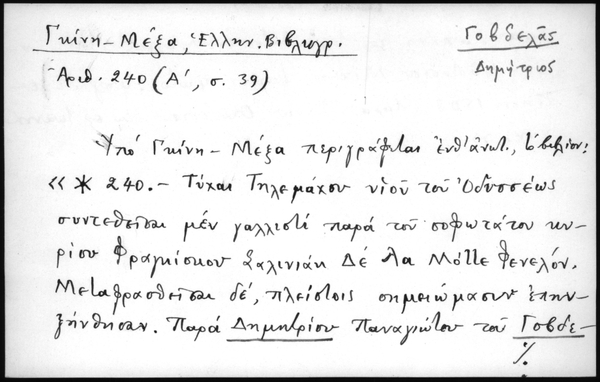 Γκίνη – Μέξα, Ἑλλην. Βιβλιογρ.
Γοβδελᾶς
Ἀριθ. 240 (Α΄, σ. 39)
Δημήτριος
Ὑπό Γκίνη – Μέξα περιγράφεται ἐνθ' ἀνωτ., τό βιβλίον:
«✶ 240. – Τύχαι Τηλεμάχου υἱοῦ τοῦ Ὀδυσσέως
συντεθεῖσαι μέν γαλλιστί παρά τοῦ σοφωτάτου κυ-
ρίου Φραγκίσκου Σαλινιάκ Δέ Λα Μόττε Φενελόν.
Μεταφρασθεῖσαι δέ, πλείστοις σημειώμασιν ἐπηυ-
ξήνθησαν. Παρά Δημητρίου Παναγιώτου τοῦ Γοβδε-
./.